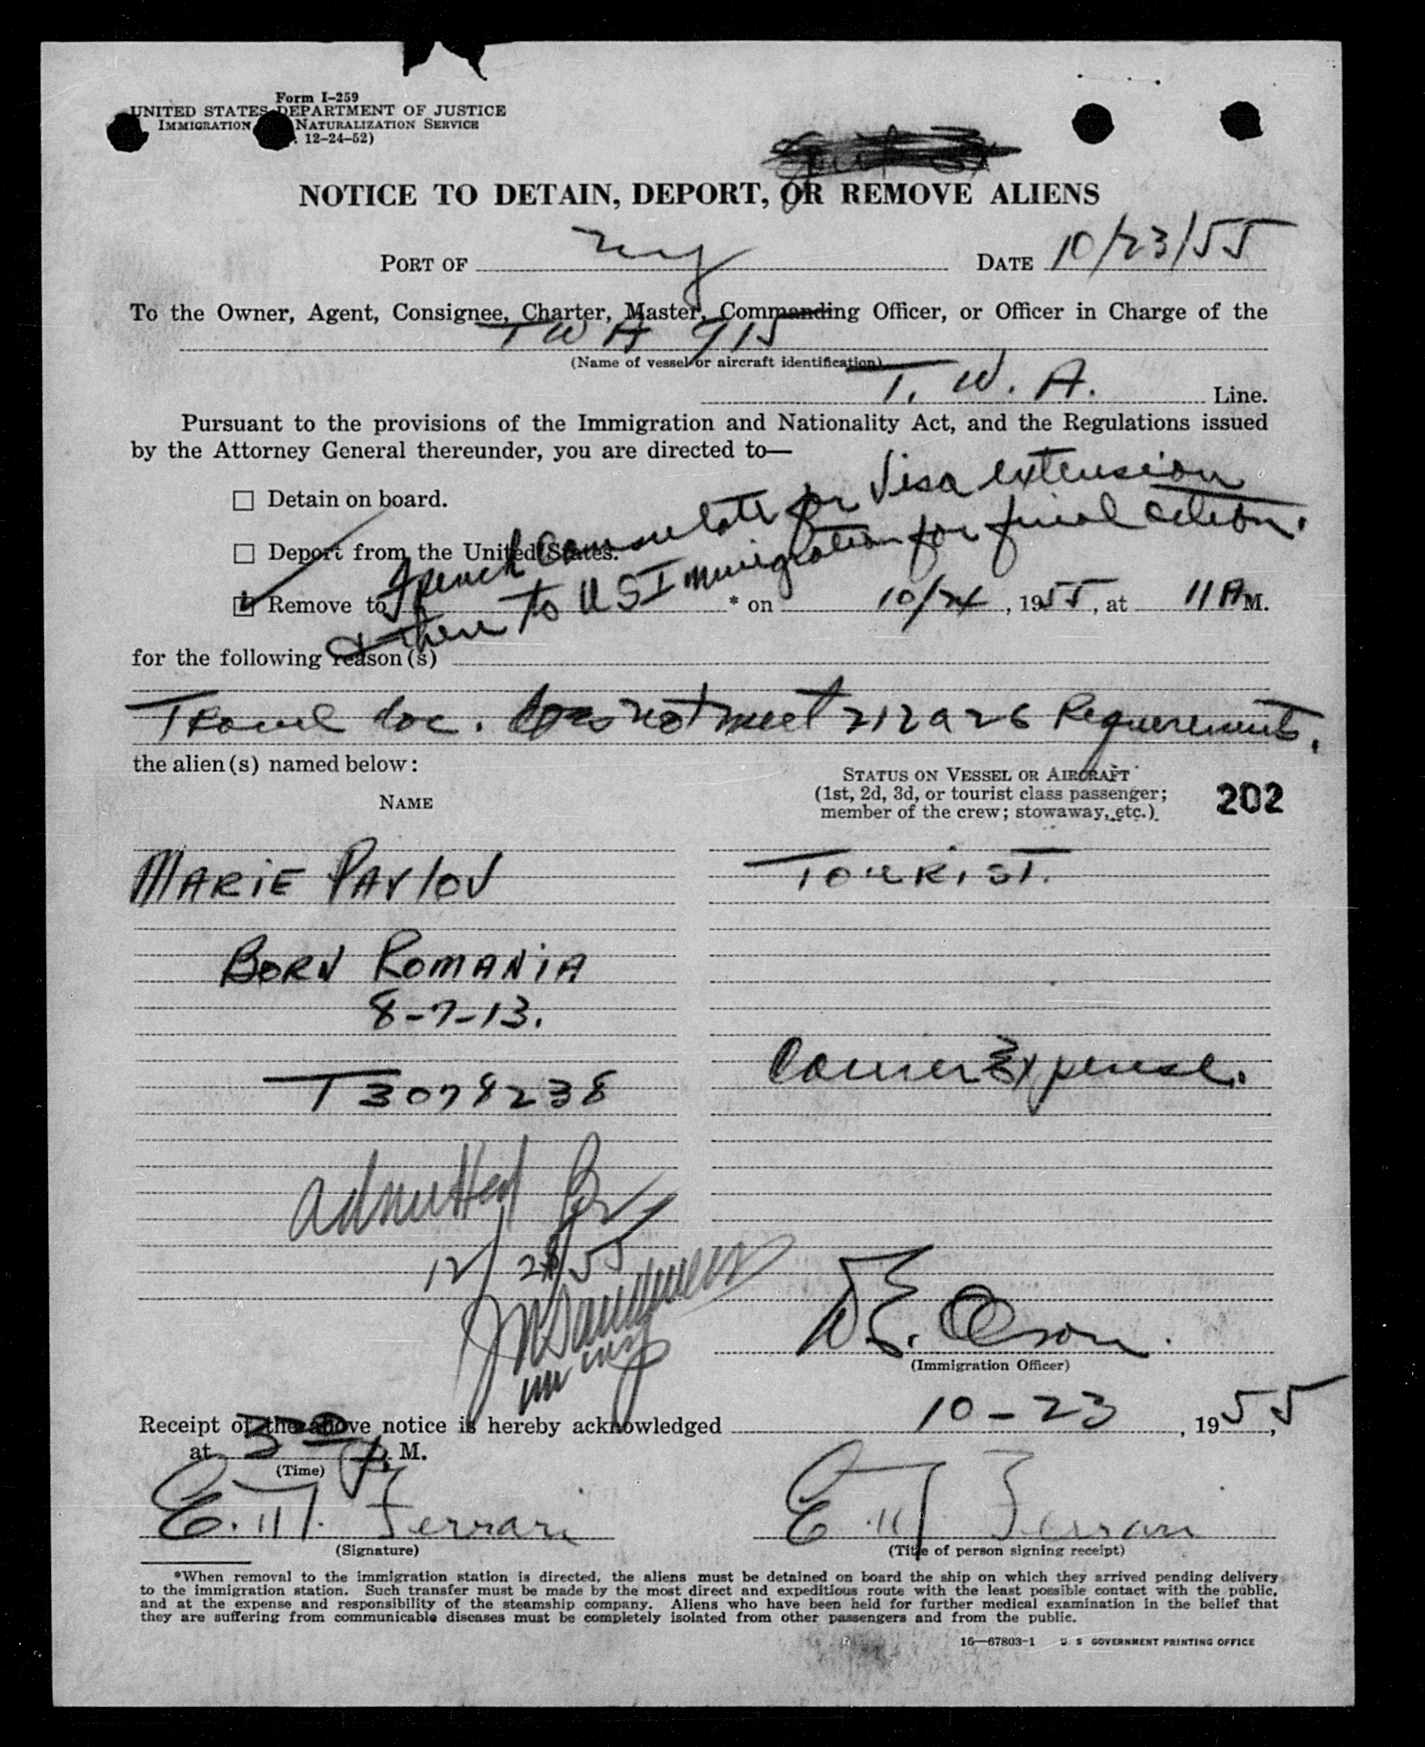 Form I-259
UNITED STATES DEPARTMENT OF JUSTICE
IMMIGRATION NATURALIZATION SERVICE
12-24-52)
NOTICE TO DETAIN, DEPORT, OR REMOVE ALIENS
PORT OF NY DATE 10/23/55
To the Owner, Agent, Consignee, Charter, Master, Commanding Officer, or Officer in Charge of the
TWA 915
(Name of vessel or aircraft identification)
T. W. A. Line.
Pursuant to the provisions of the Immigration and Nationality Act, and the Regulations issued
by the Attorney General thereunder, you are directed to—
☐ Detain on board.
☐ Deport from the United States.
☑ Remove to French Consulate for Visa extension
& then to US Immigration for final action. * on 10/24, 1955, at 11 AM.
for the following reason(s)
Travel doc. does not meet 212a26 Requirements.
the alien(s) named below:
STATUS ON VESSEL OR AIRCRAFT
(1st, 2d, 3d, or tourist class passenger;
member of the crew; stowaway, etc.)
202
NAME
MARIE PAVLOV TOURIST.
BORN ROMANIA
8-7-13.
Carrier Expense.
T3078238
admitted
12/ /55
D.E. Olson.
(Immigration Officer)
Receipt of the above notice is hereby acknowledged 10-23, 1955,
at 3 00 P. M.
(Time)
E. M. Ferrari E. M. Ferrari
(Signature) (Title of person signing receipt)
*When removal to the immigration station is directed, the aliens must be detained on board the ship on which they arrived pending delivery
to the immigration station. Such transfer must be made by the most direct and expeditious route with the least possible contact with the public,
and at the expense and responsibility of the steamship company. Aliens who have been held for further medical examination in the belief that
they are suffering from communicable diseases must be completely isolated from other passengers and from the public.
16—67803-1 U S GOVERNMENT PRINTING OFFICE